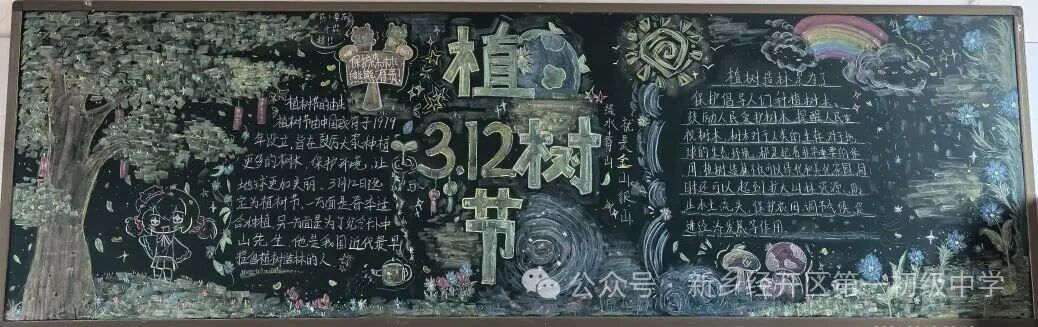 保护森林
熊熊有责
植树节的由来
植树节由中国政府于1979
年设立，旨在鼓励大家种植
更多的树木，保护环境，让
地球更加美丽。3月12日选
定为植树节，一方面是春季适
合种植，另一方面是为了纪念孙中
山先生，他是我国近代最早
提倡植树造林的人
植
3.12树
节
绿水青山
就是金山银山
植树造林身为了
保护倡导人们种植树木、
鼓励人民爱护树木、提醒人民重
视树木。树木对于人类的生存，对于地
球的生态环境，都是起着非常重要的作
用
同
时还可以起到扩大山林资源、防
止水土流失、保护农田、调节气候、促
进经济发展等作用。
公众号 · 新乡经开区第一初级中学